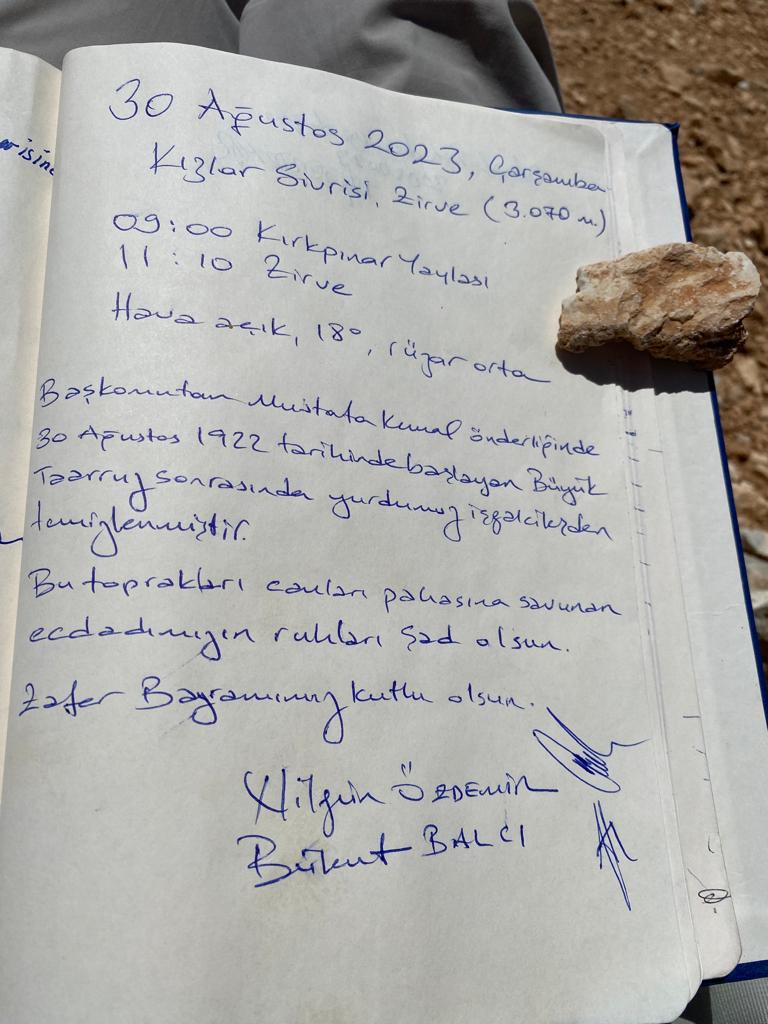 erisine
30 Ağustos 2023, Çarşamba
Kızlar Sivrisi, Zirve (3.070 m.)
09:00 Kırkpınar Yaylası
11:10 Zirve
Hava açık, 18°, rüzgar orta
Başkomutan Mustafa Kemal önderliğinde
30 Ağustos 1922 tarihinde başlayan Büyük
Taarruz sonrasında yurdumuz işgalcilerden
temizlenmiştir.
Bu toprakları canları pahasına savunan
ecdadımızın ruhları şad olsun.
Zafer Bayramımız kutlu olsun.
Nilgün ÖZDEMİR
Bülent BALCI